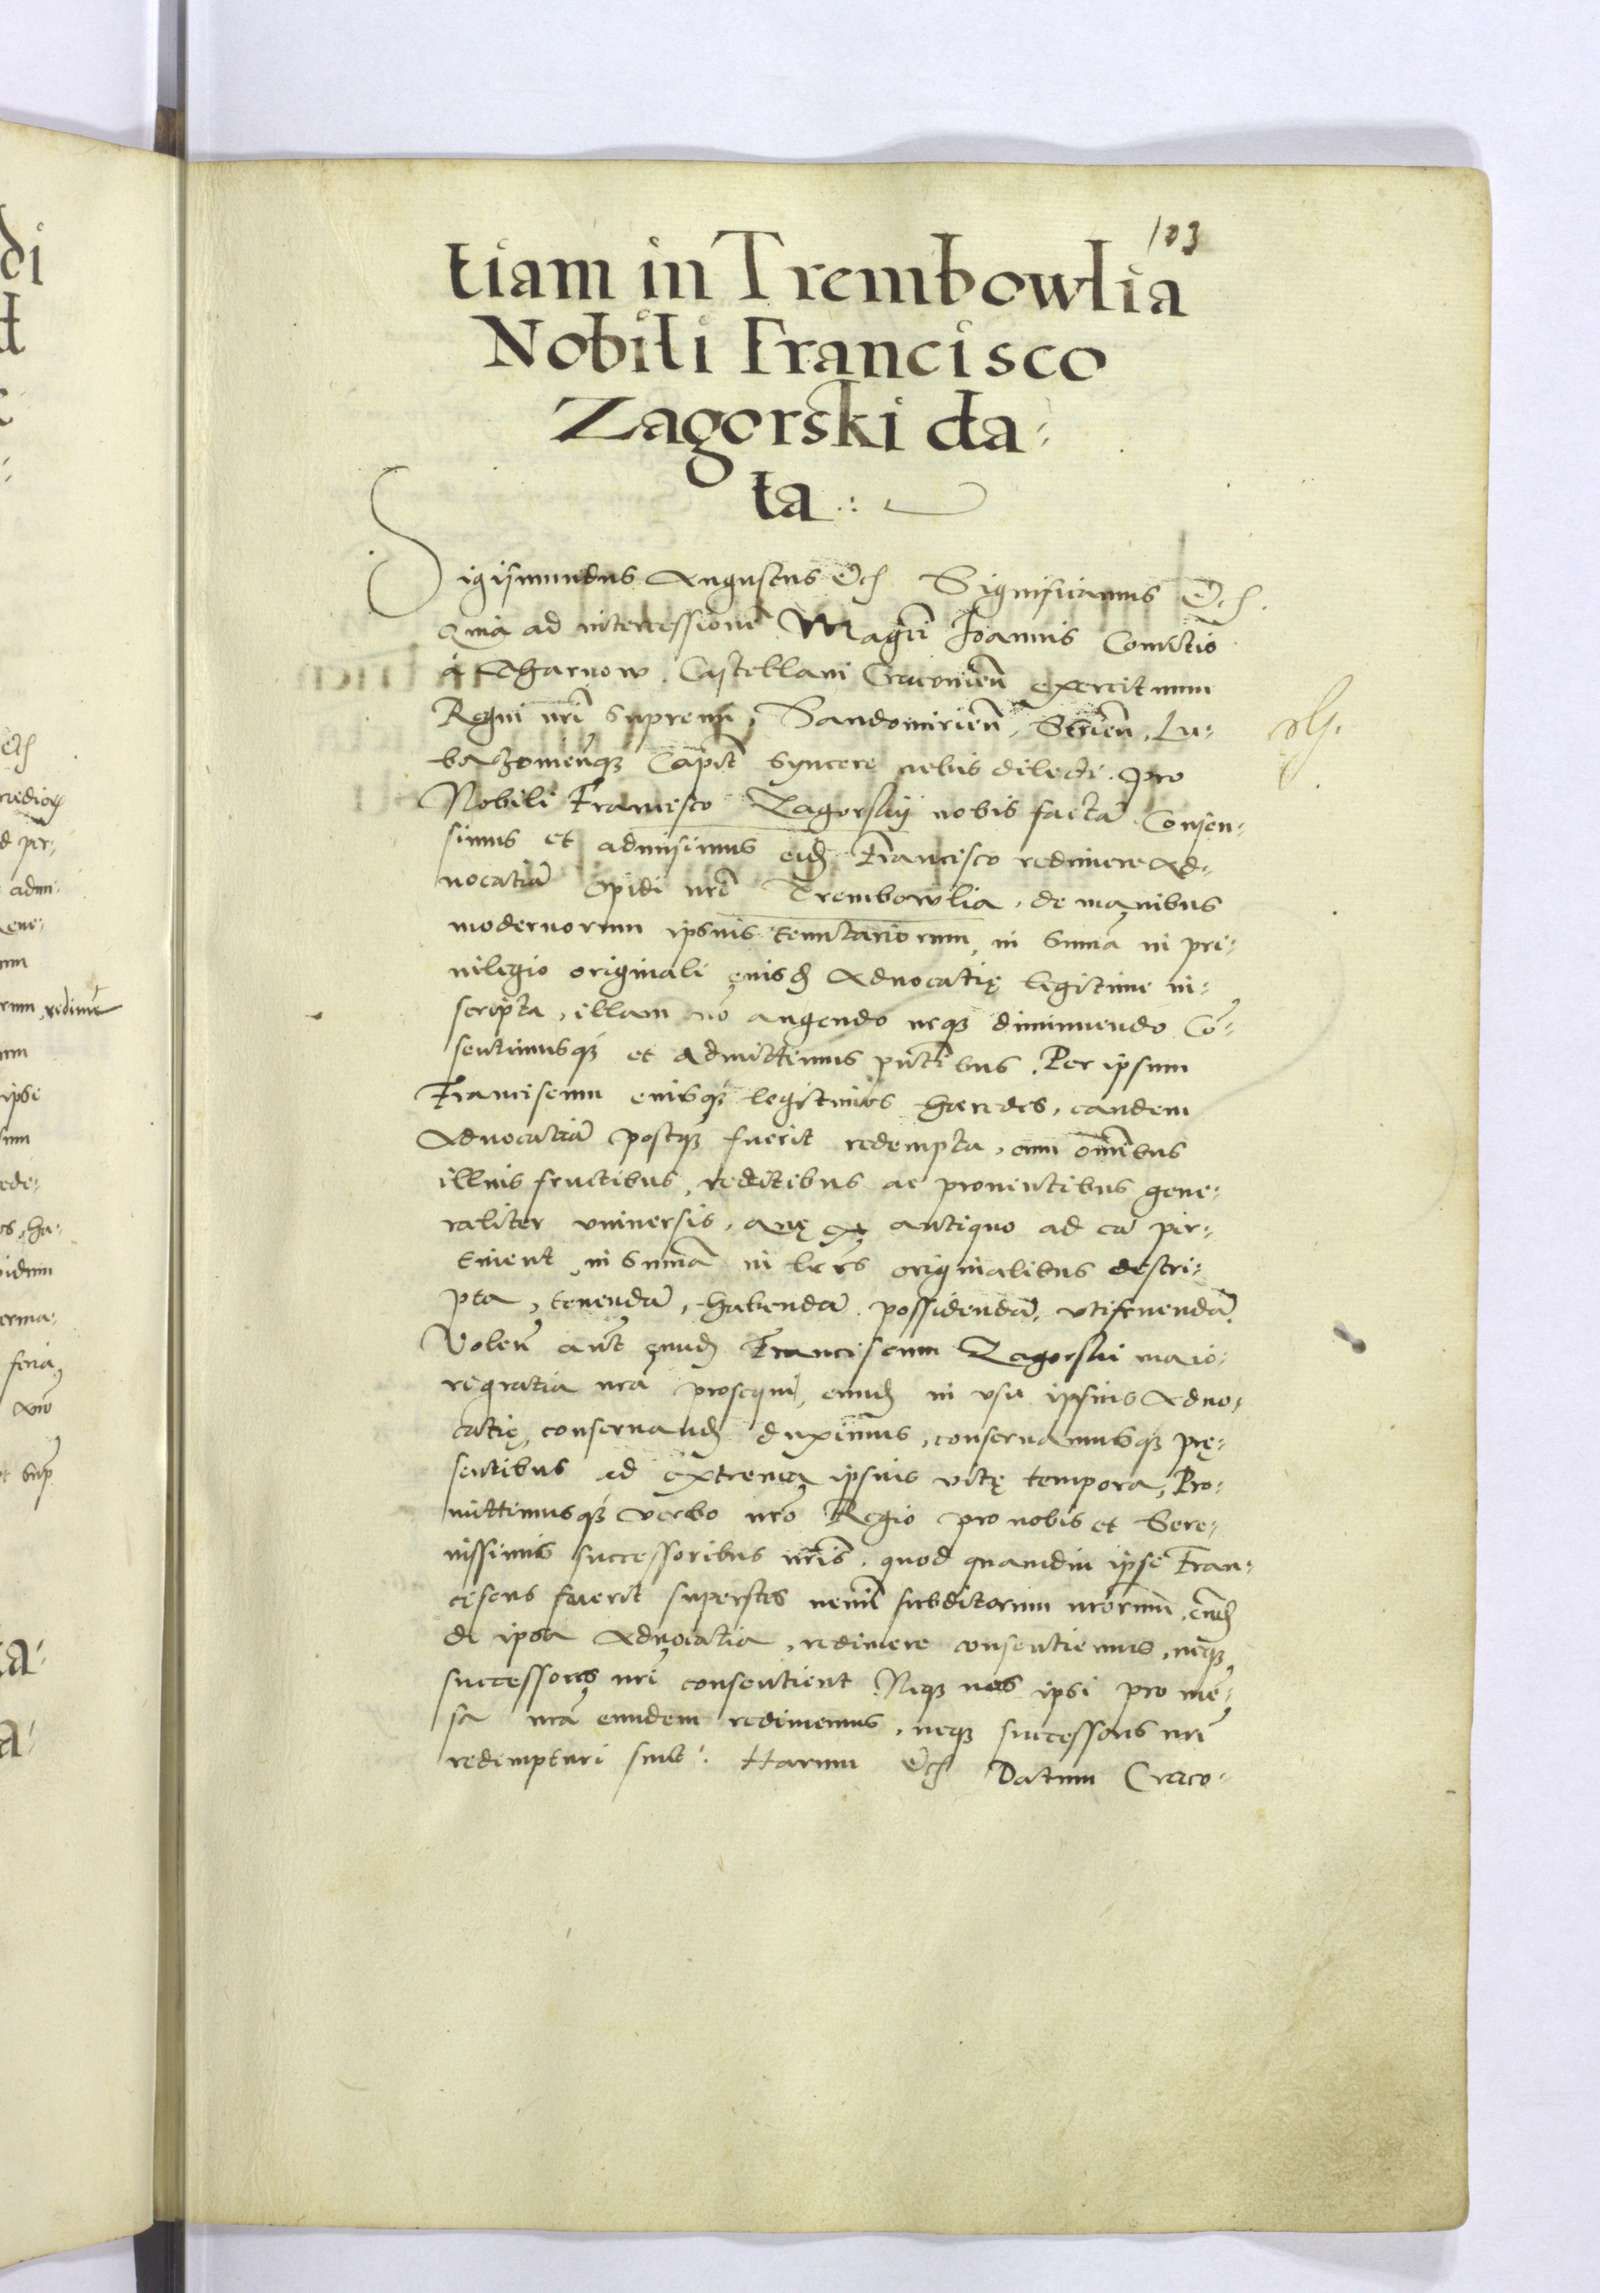 103
tiam in Trembowlia
Nobili Francisco
Zagorski da:
ta
Sigismundus Augustus Etc Significamus Etc.
Quia ad intercessionē Magci Joannis Comitis
a Tharnow. Castellani Cracovień exercituum
Regni nri supremi, Sandomirień, Strień, Lu:
baczovieńq; Capit syncere nobis dilecti. pro
Nobili Francisco Zagorskij nobis factā. Consen:
simus et admisimus eid Francisco redimere Ad:
vocatiā Opidi nri Trembowlia, de manibus
modernorum ipsius tenutariorum, in summa in pri:
vilegio originali eiusd Advocatię legitime in:
scripta, illam nō augendo neq; diminuendo Cō:
sentimusq; et admittimus pntibus. Per ipsum
Franciscum eiusq; legitimos hæredes, eandem
Advocatiā postq; fuerit redempta, cum omibus
illius fructibus, redditibus ac proventibus gene:
raliter universis, quę ex antiquo ad eā per:
tinent, in summa in lris originalibus descri:
pta, tenendā, habendā possidendā, utifruendā.
Voleń aut eund Franciscum Zagorski maio:
re gratia nra prosequi, eund in usu ipsius Advo:
catię, conservand duximus, conservamusq; prę:
sentibus ad extrema ipsius vitę tempora, Pro:
mittimusq; verbo nro Regio pro nobis et Sere:
nissimis successoribus nris. quod quamdiu ipse Fran:
ciscus fuerit superstes nemini subditorum nrorum, eund
de ipsa Advocatia, redimere consentiemus, neq;
successores nri consentient Neq; nos ipsi pro me:
sa nra eundem redimemus, neq; successores nri
redempturi sint. Harum Etc Datum Craco: